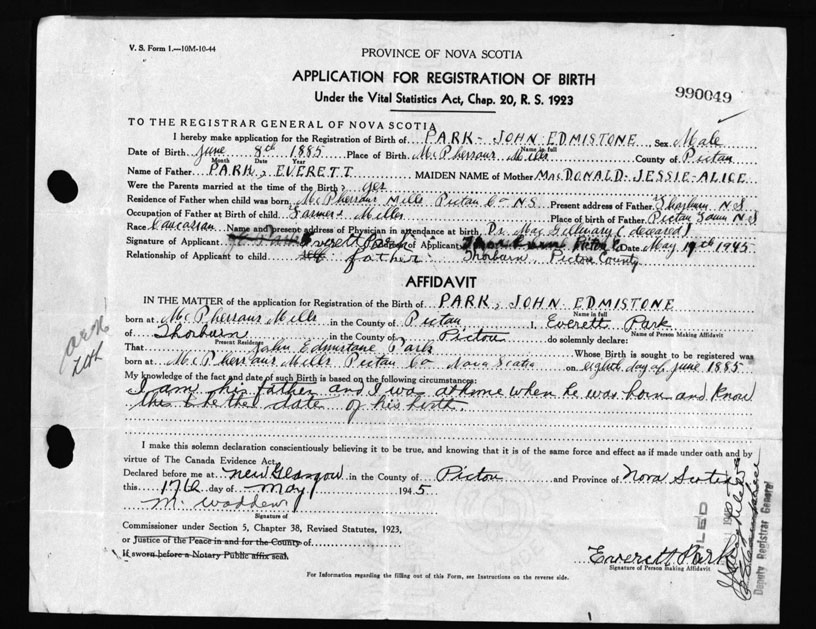 V. S. Form 1.—10M-10-44
PROVINCE OF NOVA SCOTIA
APPLICATION FOR REGISTRATION OF BIRTH
Under the Vital Statistics Act, Chap. 20, R. S. 1923
990049
TO THE REGISTRAR GENERAL OF NOVA SCOTIA
I hereby make application for the Registration of Birth of PARK - JOHN EDMISTONE Sex Male
Name in full
Date of Birth June 8th 1885 Place of Birth McPherrans Mills County of Pictou
Month Date Year
Name of Father PARK, EVERETT MAIDEN NAME of Mother MacDONALD-JESSIE-ALICE
Were the Parents married at the time of the Birth? yes
Residence of Father when child was born, McPherrans Mills Pictou Co NS Present address of Father Thorburn NS
Occupation of Father at Birth of child. Farmer & Miller Place of birth of Father Pictou Town NS
Race Caucasian Name and present address of Physician in attendance at birth, Dr. Mac (deceased)
Signature of Applicant Everett Park of Applicant Thorburn Pictou Co Date May 19th 1945
Relationship of Applicant to child self father Thorburn, Pictou County
AFFIDAVIT
IN THE MATTER of the application for Registration of the Birth of PARK, JOHN EDMISTONE
Name in full
born at McPherrans Mills in the County of Pictou I, Everett Park
Name of Person Making Affidavit
of Thorburn in the County of Pictou do solemnly declare:
Present Residence
That John Edmistone Park Whose Birth is sought to be registered was
born at McPherrans Mills Pictou Co Nova Scotia on eighth day of June 1885
My knowledge of the fact and date of such Birth is based on the following circumstances:
I am his father and I was at home when he was born and know
this to be the date of his birth.
I make this solemn declaration conscientiously believing it to be true, and knowing that it is of the same force and effect as if made under oath and by
virtue of The Canada Evidence Act.
Declared before me at New Glasgow in the County of Pictou and Province of Nova Scotia
this 17th day of May 1945
M. Wadden
Signature of
Commissioner under Section 5, Chapter 38, Revised Statutes, 1923,
or Justice of the Peace in and for the County of
If sworn before a Notary Public affix seal.
Everett Park
Signature of Person Making Affidavit
Deputy Registrar General
For Information regarding the filling out of this Form, see Instructions on the reverse side.